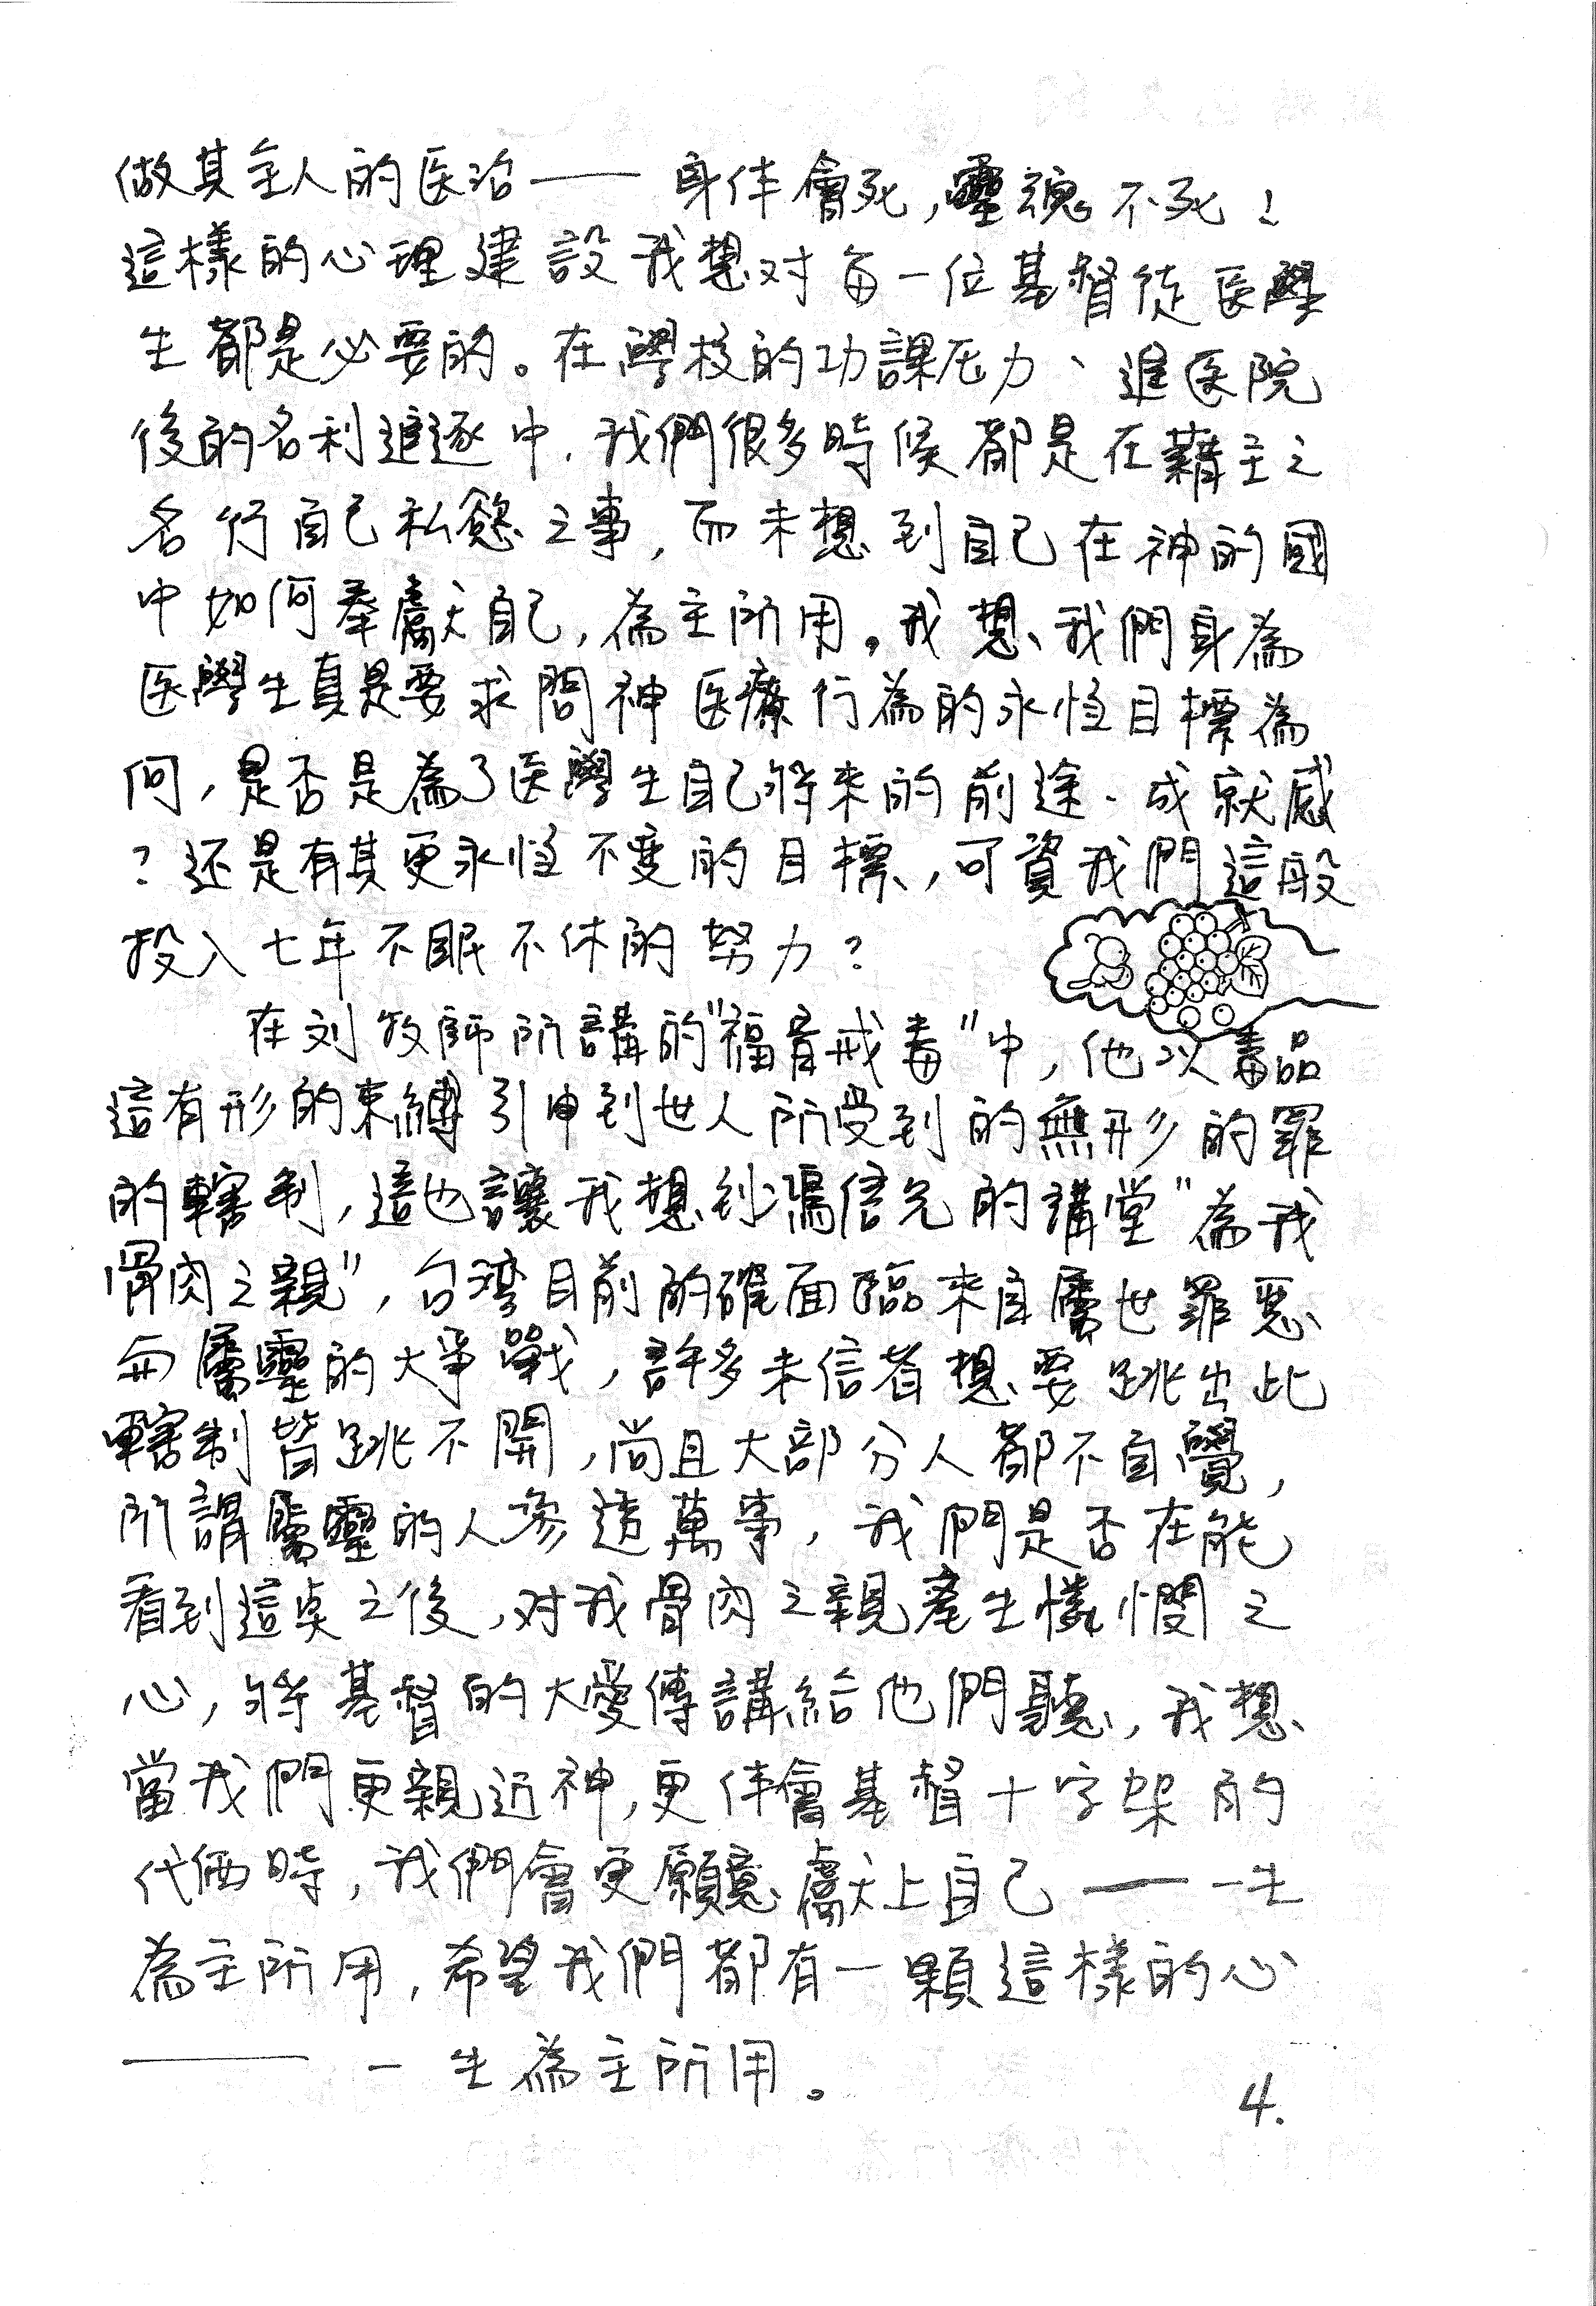 做其全人的医治——身体會死,靈魂不死!
這樣的心理建設我想对每一位基督徒医學
生都是必要的。在學校的功課压力、進医院
後的名利追逐中,我們很多時候都是在藉主之
名行自己私慾之事,而未想到自己在神的國
中如何奉獻自己,為主所用。我想我們身為
医學生真是要求問神医療行為的永恆目標為
何,是否是為了医學生自己將來的前途、成就感
?还是有其更永恆不變的目標,可資我們這般
投入七年不眠不休的努力?
在刘牧師所講的"福音戒毒"中,他以毒品
這有形的束縛引申到世人所受到的無形的罪
的轄制,這也讓我想到鴻信兄的講堂"為我
骨肉之親",台湾目前的確面臨來自屬世罪惡
与屬靈的大爭戰,許多未信者想要跳出此
轄制皆跳不開,尚且大部分人都不自覺,
所謂屬靈的人參透萬事,我們是否在能
看到這点之後,对我骨肉之親產生憐憫之
心,將基督的大愛傳講給他們聽,我想
當我們更親近神,更体會基督十字架的
代価時,我們會更願意獻上自己——一生
為主所用,希望我們都有一顆這樣的心
——一生為主所用。
4.